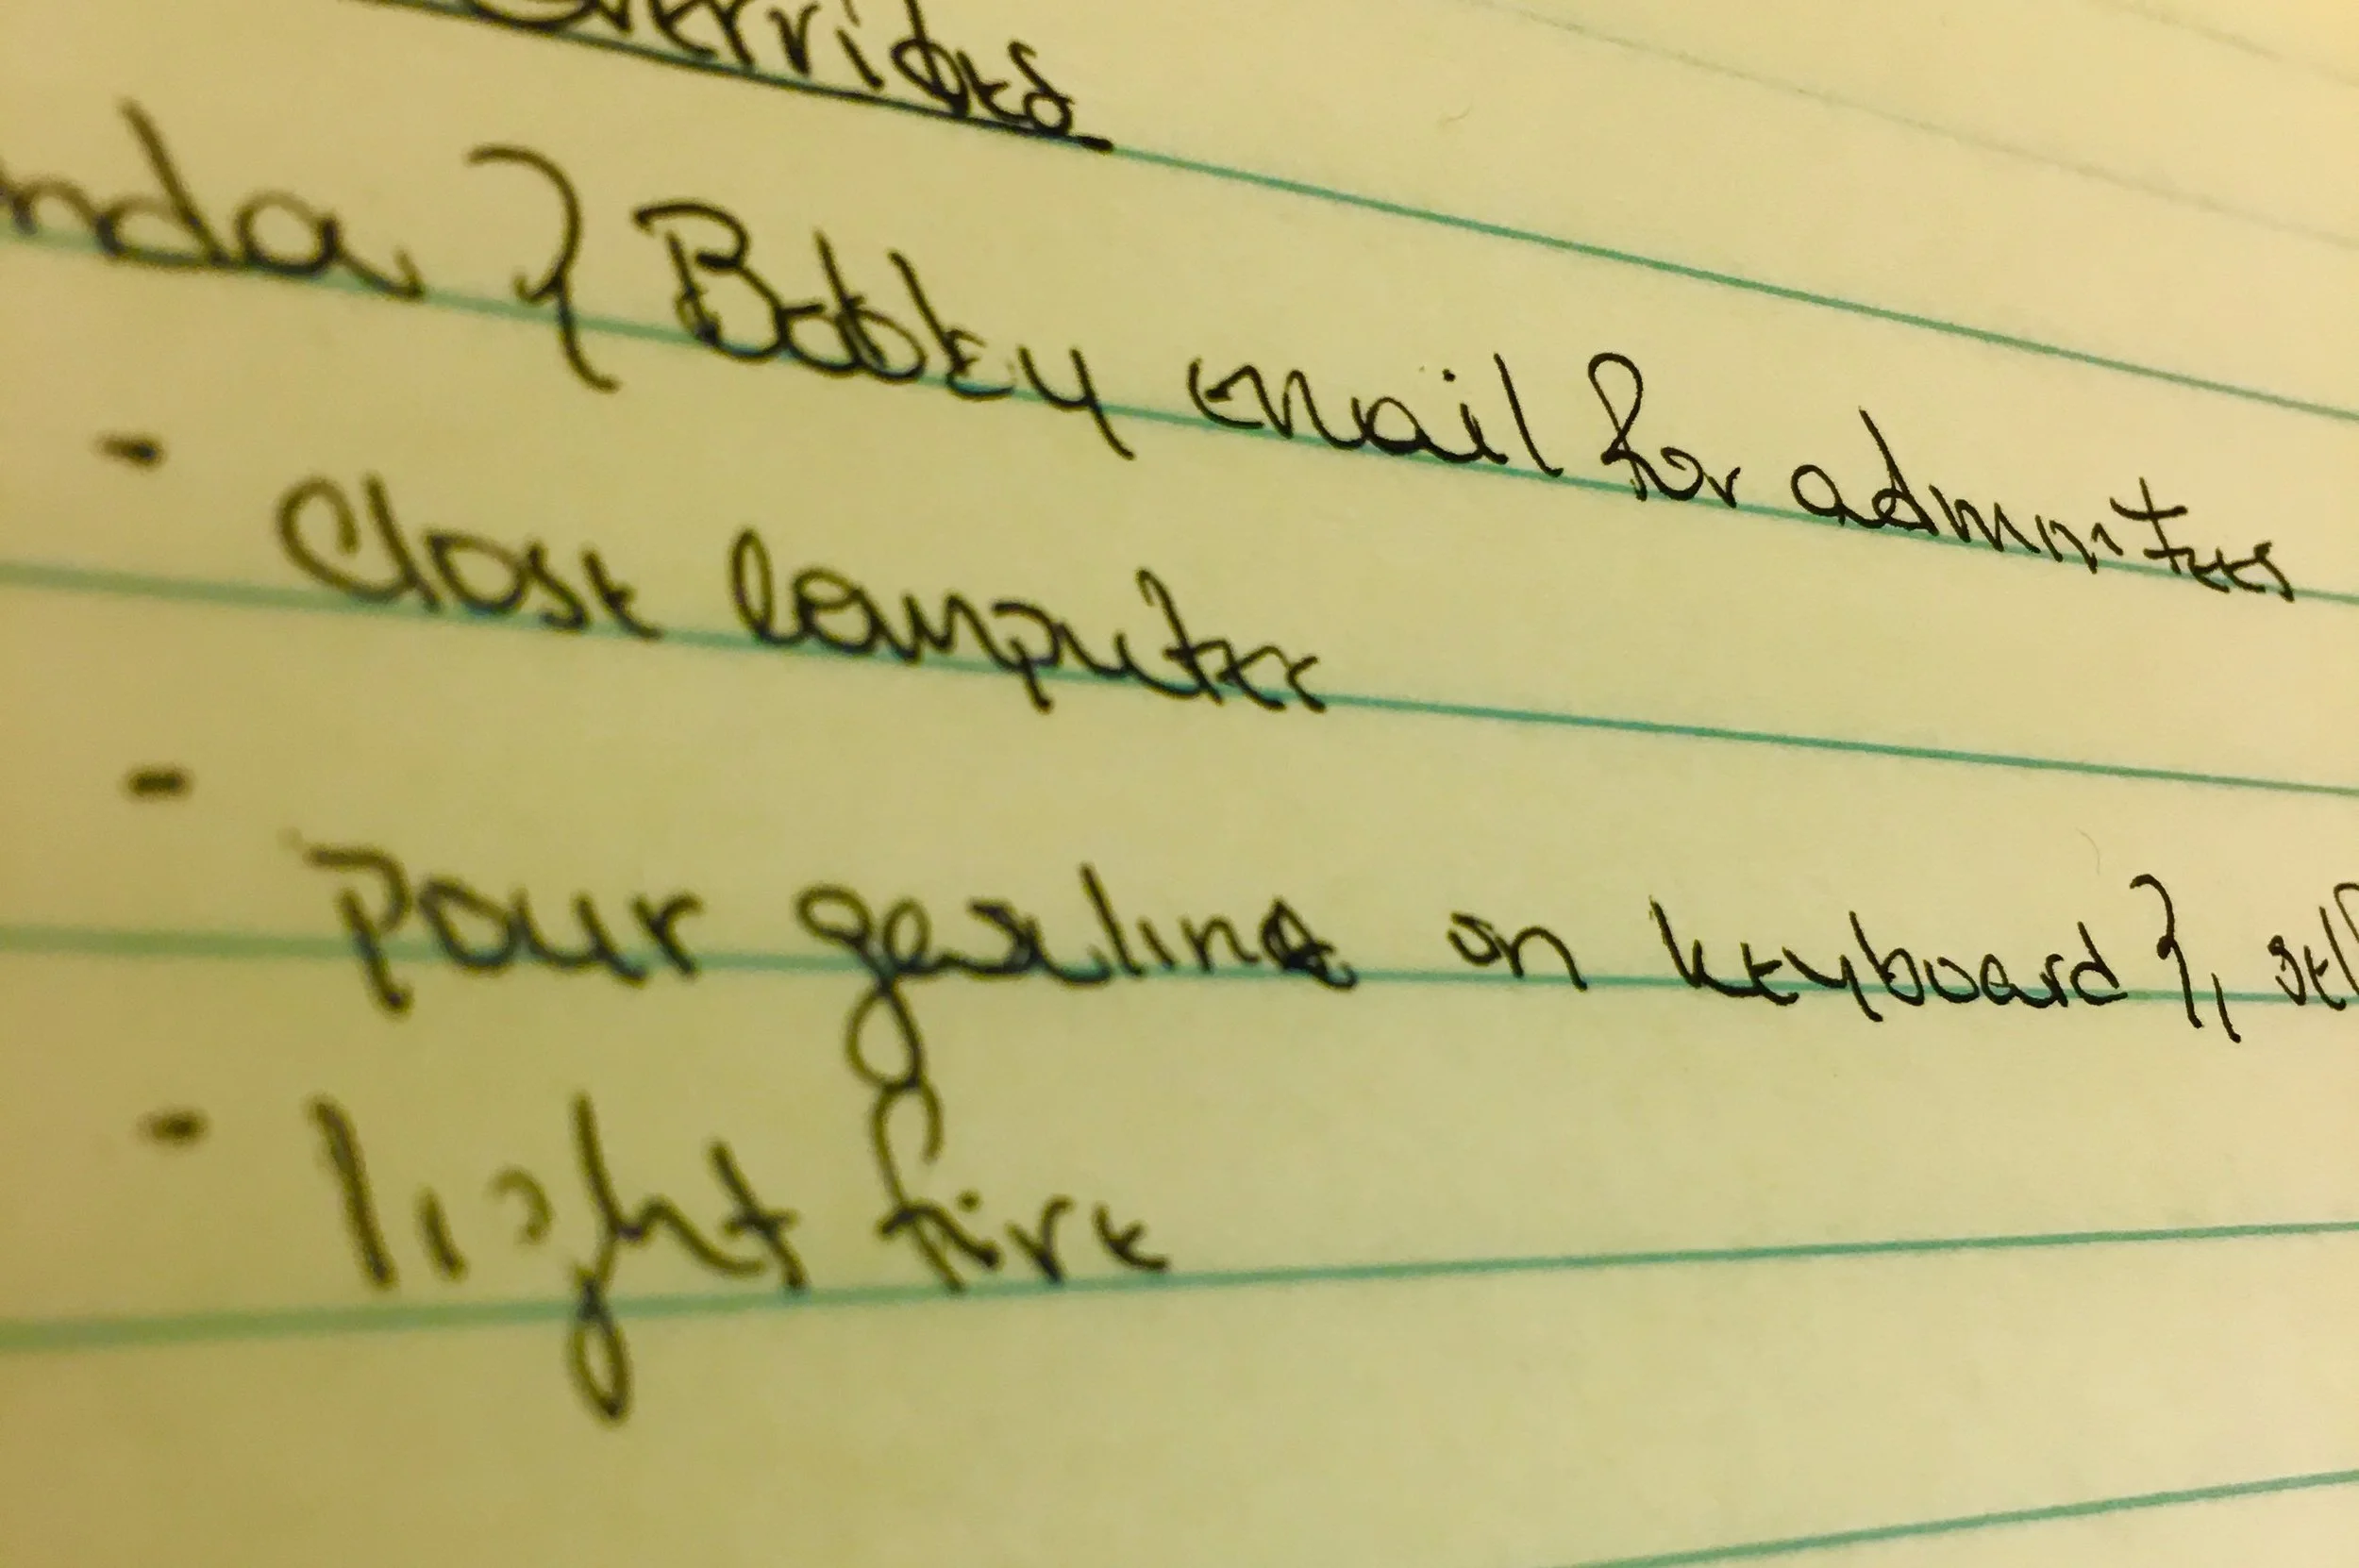 Overrides
nda & Bobby email for admnttees
- Close computer
- Pour gasoline on keyboard &, self
- light fire